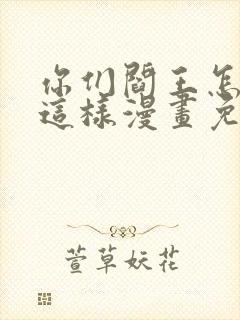 你们閻王怎
這樣漫畫免
萱草妖花